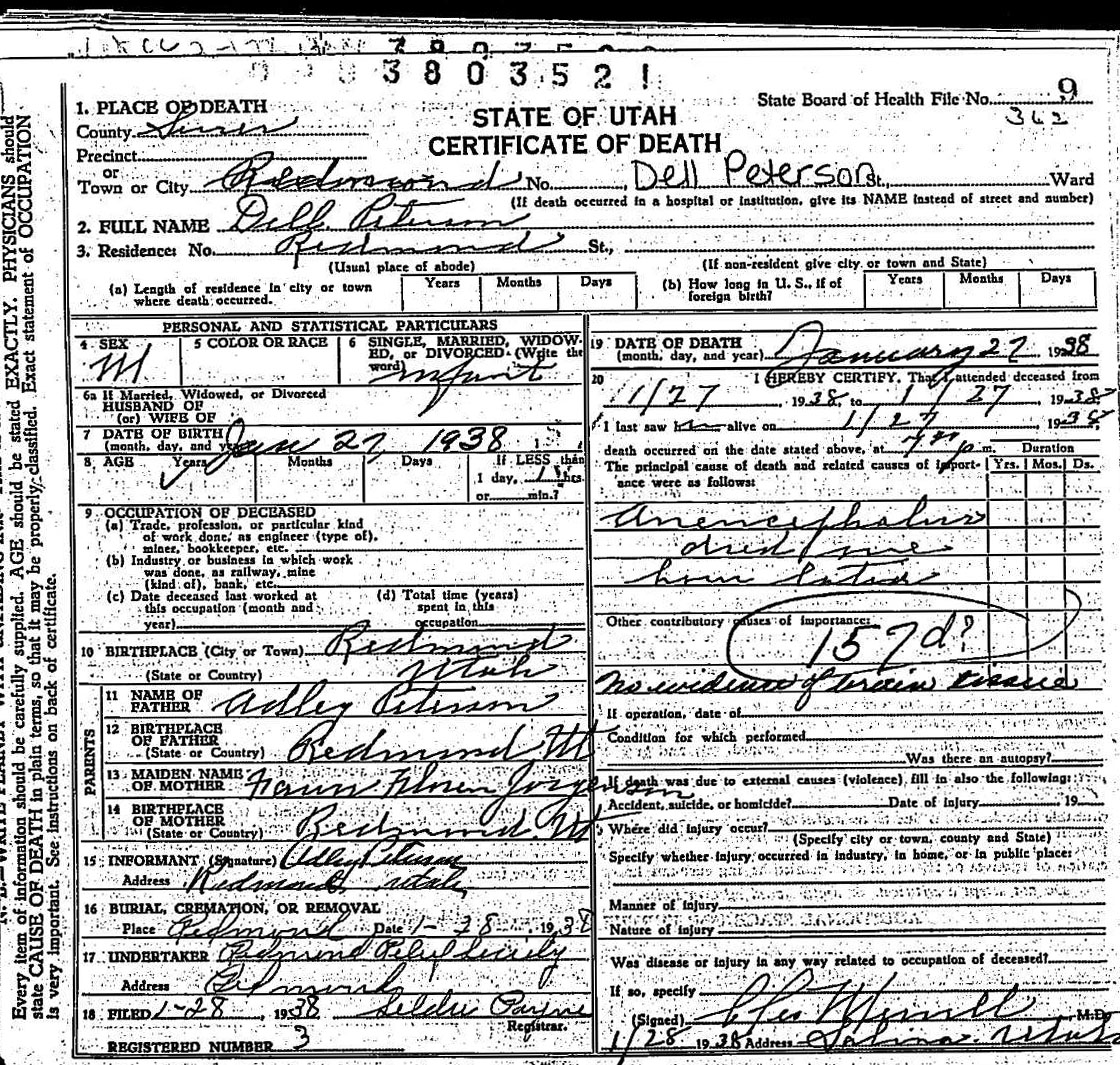 3803521
State Board of Health File No. 9
362
STATE OF UTAH
CERTIFICATE OF DEATH
1. PLACE OF DEATH
County Sevier
Precinct
or
Town or City Redmond No. Dell Peterson St., Ward
(If death occurred in a hospital or institution, give its NAME instead of street and number)
2. FULL NAME Dell Peterson
3. Residence: No. Redmond St.,
(Usual place of abode) (If non-resident give city or town and State)
(a) Length of residence in city or town where death occurred. Years Months Days
(b) How long in U. S., if of foreign birth? Years Months Days
PERSONAL AND STATISTICAL PARTICULARS
4 SEX M
5 COLOR OR RACE
6 SINGLE, MARRIED, WIDOW-
ED, or DIVORCED (Write the
word) infant
6a If Married, Widowed, or Divorced
HUSBAND OF
(or) WIFE OF
7 DATE OF BIRTH
(month, day, and year) Jan 27, 1938
8 AGE Years Months Days If LESS than
1 day, 1 hrs.
or min.?
9 OCCUPATION OF DECEASED
(a) Trade, profession, or particular kind
of work done, as engineer (type of),
miner, bookkeeper, etc.
(b) Industry or business in which work
was done, as railway, mine
(kind of), bank, etc.
(c) Date deceased last worked at
this occupation (month and
year)
(d) Total time (years)
spent in this
occupation
10 BIRTHPLACE (City or Town) Redmond
(State or Country) Utah
PARENTS
11 NAME OF
FATHER Adley Peterson
12 BIRTHPLACE
OF FATHER
(State or Country) Redmond Ut
13 MAIDEN NAME
OF MOTHER Jorgenson
14 BIRTHPLACE
OF MOTHER
(State or Country) Redmond Ut
15 INFORMANT (Signature) Adley Peterson
Address Redmond, Utah
16 BURIAL, CREMATION, OR REMOVAL
Place Redmond Date 1-28, 1938
17 UNDERTAKER Redmond Relief Society
Address Redmond
18 FILED 1-28, 1938 Payne
Registrar.
REGISTERED NUMBER 3
19 DATE OF DEATH
(month, day, and year) January 27 1938
20 I HEREBY CERTIFY, That I attended deceased from
1/27, 1938 to 1/27, 1938
I last saw him alive on 1/27 1938
death occurred on the date stated above, at 7 p m.
The principal cause of death and related causes of import-
ance were as follows:
Duration
Yrs. Mos. Ds.
Anencephalus
died one
hour later
Other contributory causes of importance:
157d?
No evidence of brain tissue
If operation, date of
Condition for which performed
Was there an autopsy?
If death was due to external causes (violence), fill in also the following:
Accident, suicide, or homicide? Date of injury 19
Where did injury occur?
(Specify city or town, county and State)
Specify whether injury occurred in industry, in home, or in public place:
Manner of injury
Nature of injury
Was disease or injury in any way related to occupation of deceased?
If so, specify
(Signed) Merrill M.D.
1/28 1938 Address Salina, Utah
Every item of information should be carefully supplied. AGE should be stated EXACTLY. PHYSICIANS should
state CAUSE OF DEATH in plain terms, so that it may be properly classified. Exact statement of OCCUPATION
is very important. See instructions on back of certificate.